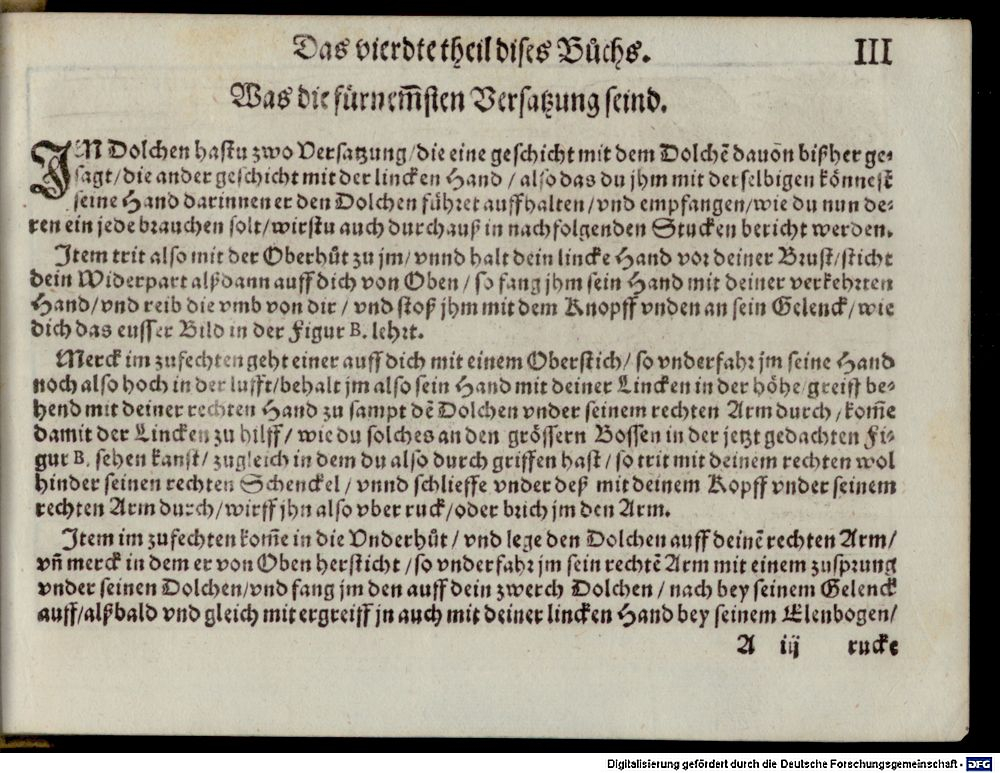 Das vierdte theil dises Bůchs.
III
Was die fürnem̃sten Versatzung seind.
IN Dolchen hastu zwo Versatzung/die eine geschicht mit dem Dolchẽ dauoñ bißher ge-
sagt/die ander geschicht mit der lincken Hand / also das du jhm mit derselbigen könnest
seine Hand darinnen er den Dolchen führet auffhalten/vnd empfangen/wie du nun de-
ren ein jede brauchen solt/wirstu auch durchauß in nachfolgenden Stucken bericht werden.
Item trit also mit der Oberhůt zu jm/vnnd halt dein lincke Hand vor deiner Brust/sticht
dein Widerpart alßdann auff dich von Oben / so fang jhm sein Hand mit deiner verkehrten
Hand/vnd reib die vmb von dir / vnd stoß jhm mit dem Knopff vnden an sein Gelenck/wie
dich das eusser Bild in der Figur B. lehrt.
Merck im zufechten geht einer auff dich mit einem Oberstich/ so vnderfahr jm seine Hand
noch also hoch in der lufft/behalt jm also sein Hand mit deiner Lincken in der höhe/greiff be-
hend mit deiner rechten Hand zu sampt dẽ Dolchen vnder seinem rechten Arm durch/kom̃e
damit der Lincken zu hilff/ wie du solches an den grössern Bossen in der jetzt gedachten Fi-
gur B. sehen kanst/ zugleich in dem du also durch griffen hast/ so trit mit deinem rechten wol
hinder seinen rechten Schenckel / vnnd schlieffe vnder deß mit deinem Kopff vnder seinem
rechten Arm durch/wirff jhn also vber ruck/oder brich jm den Arm.
Item im zufechten kom̃e in die Vnderhůt / vnd lege den Dolchen auff deinẽ rechten Arm/
vñ merck in dem er von Oben hersticht /so vnderfahr jm sein rechtẽ Arm mit einem zusprung
vnder seinen Dolchen/vnd fang jm den auff dein zwerch Dolchen / nach bey seinem Gelenck
auff/alßbald vnd gleich mit ergreiff jn auch mit deiner lincken Hand bey seinem Elenbogen/
A iij rucke
Digitalisierung gefördert durch die Deutsche Forschungsgemeinschaft - DFG